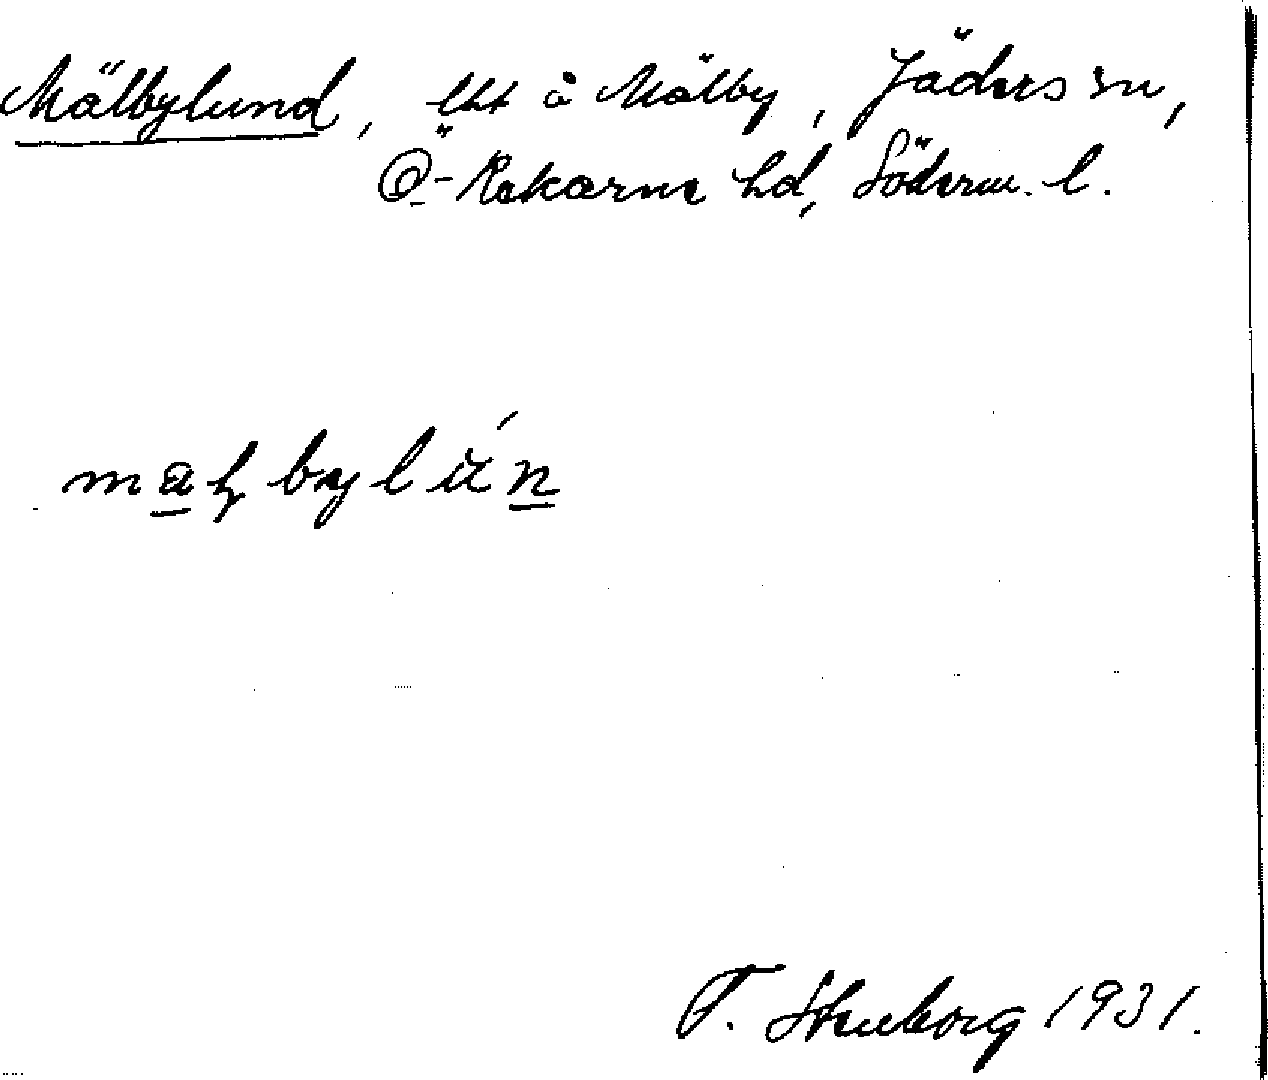 Mälbylund, lht å Mälby, Jäders sn,
Ö-Rekarne hd, Söderm. l.
bylún
F. Stenborg 1931.